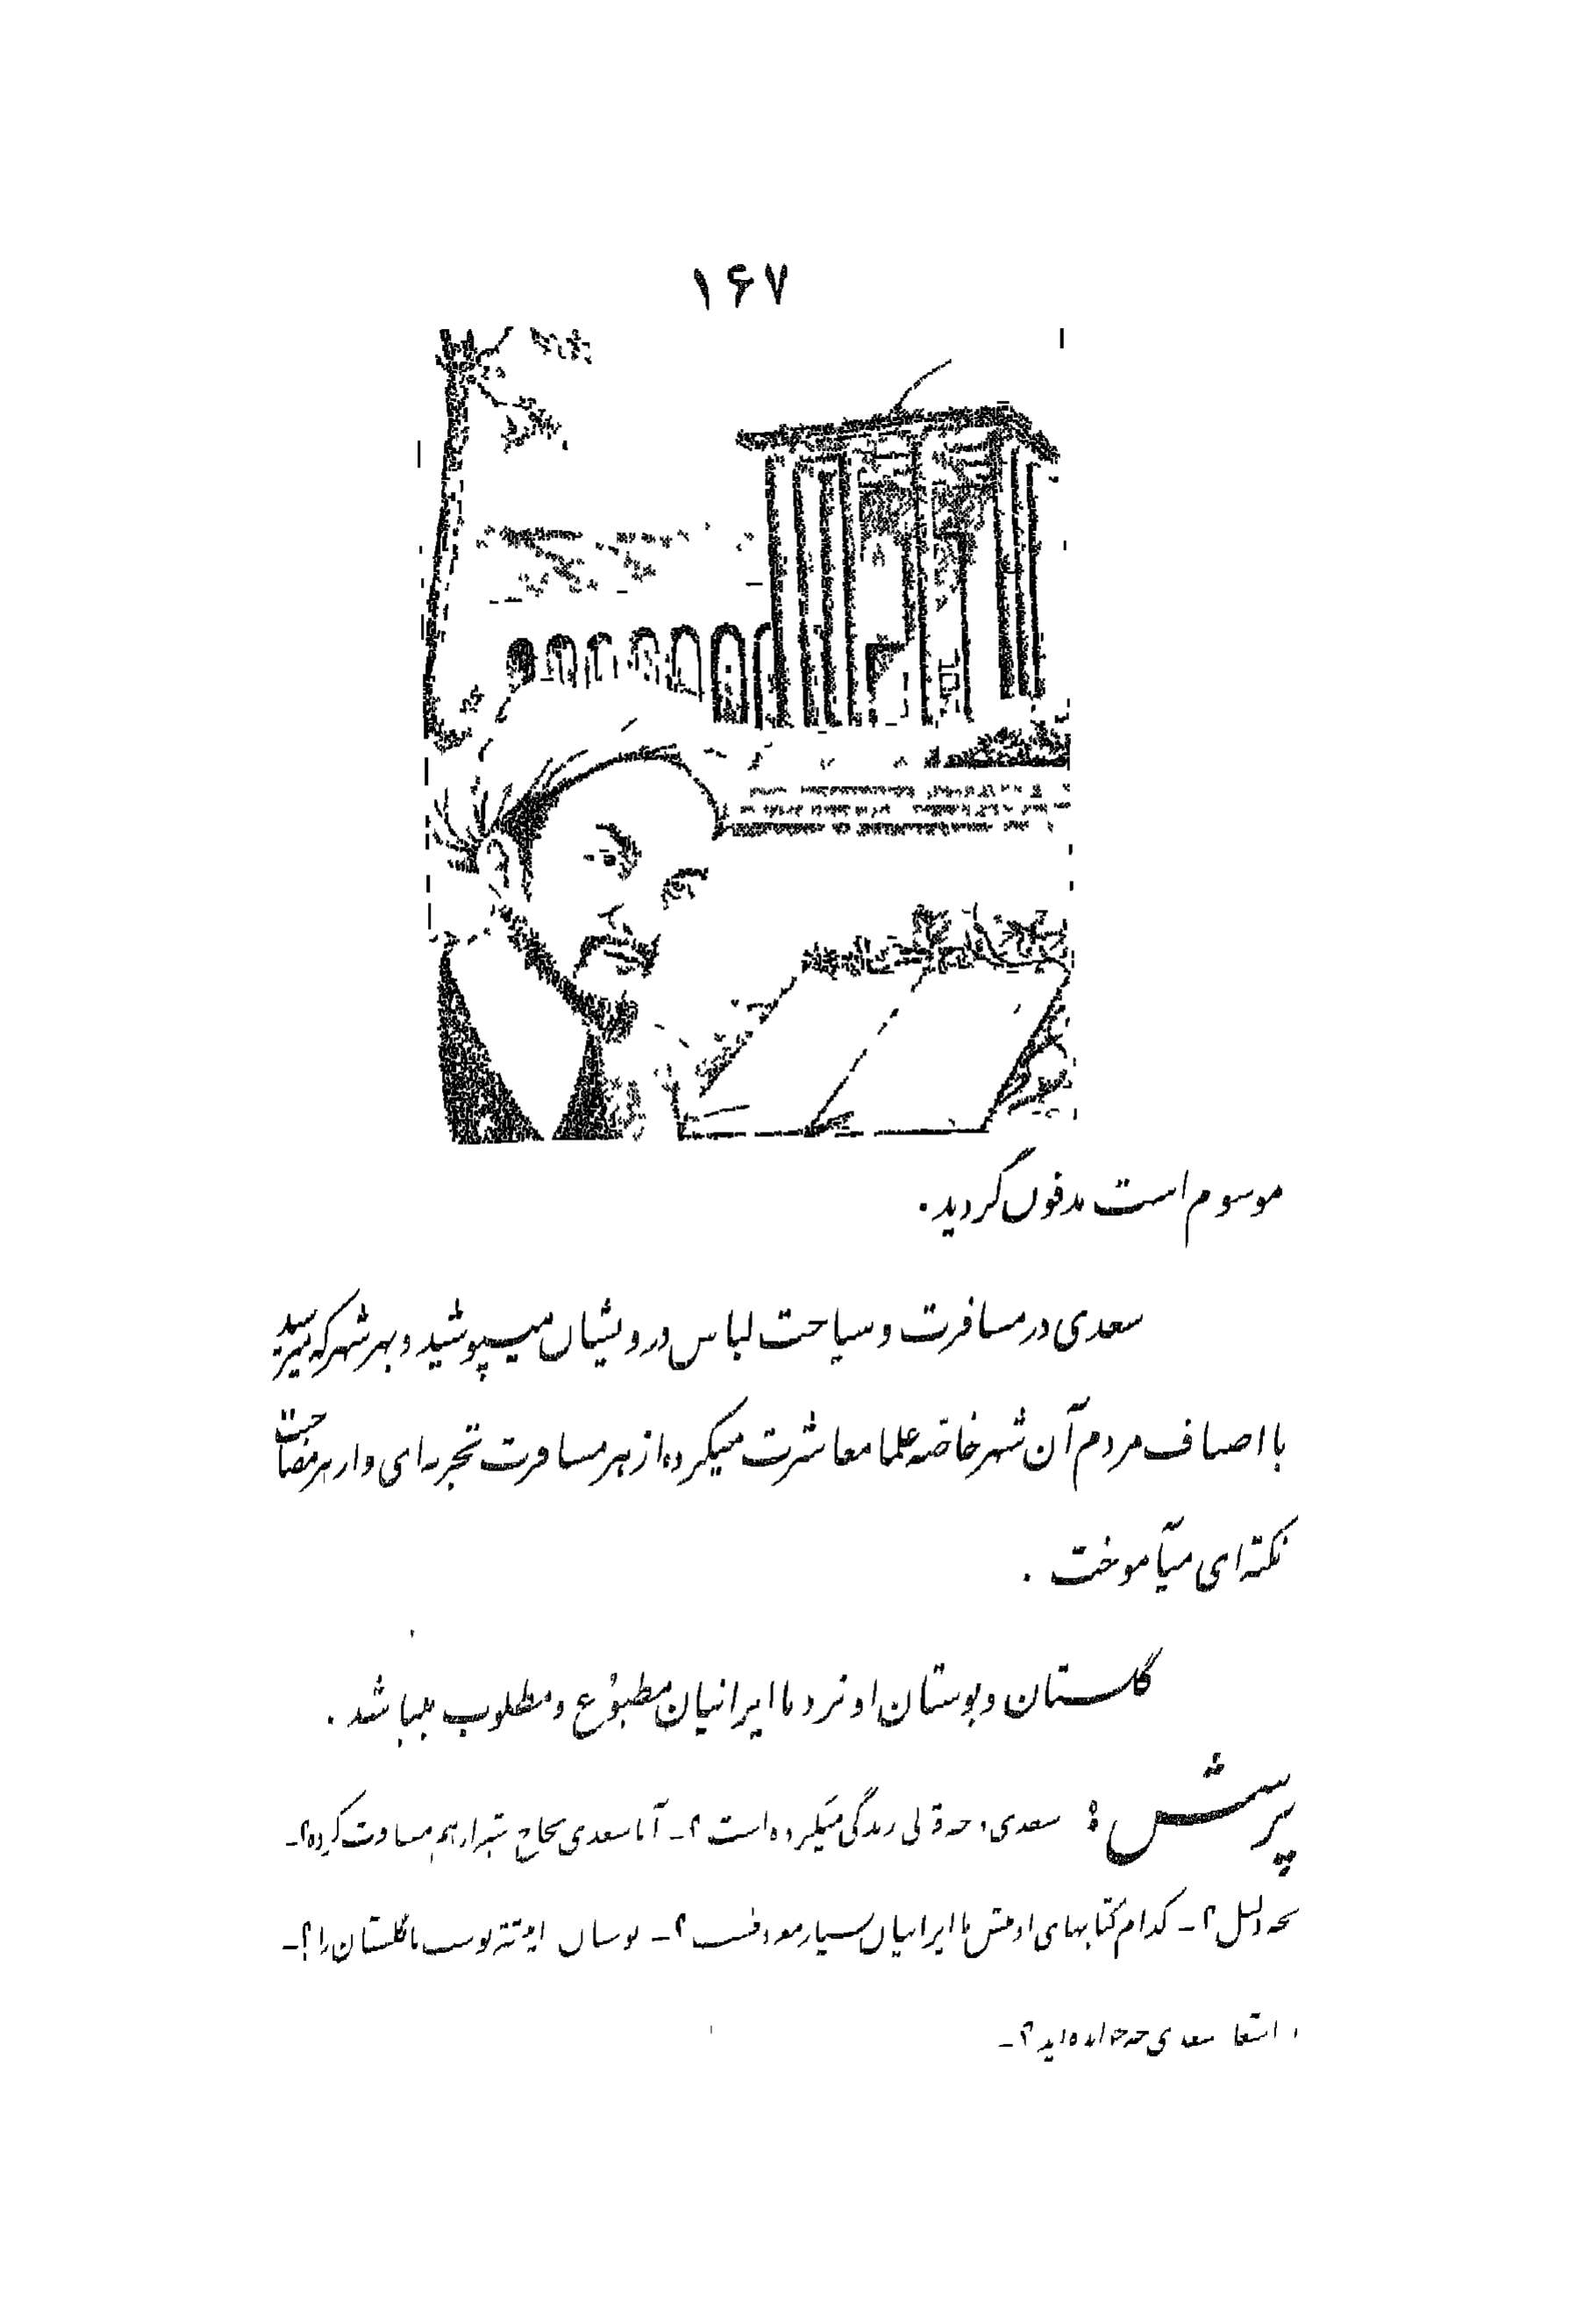 ۱۶۷
موسوم است مدفون گردید.
سعدی در مسافرت و سیاحت لباس درویشان میپوشید و بهر شهر که میرسید
با اصناف مردم آن شهر خاصّه علما معاشرت میکرد، از هر مسافرت تجربه‌ای و از هر مصاحبت
نکته‌ای میآموخت .
گلستان و بوستان او نزد ما ایرانیان مطبوع و مطلوب میباشد .
پرسش : سعدی در چه قرنی زندگی میکرده است ؟- آیا سعدی بخارج شیراز هم مسافرت کرده؟-
بچه دلیل ؟- کدام کتابهای او پیش ما ایرانیان بسیار معروفست ؟- بوستان را گلستان را ؟-
از اشعار سعدی چه خوانده‌اید ؟-